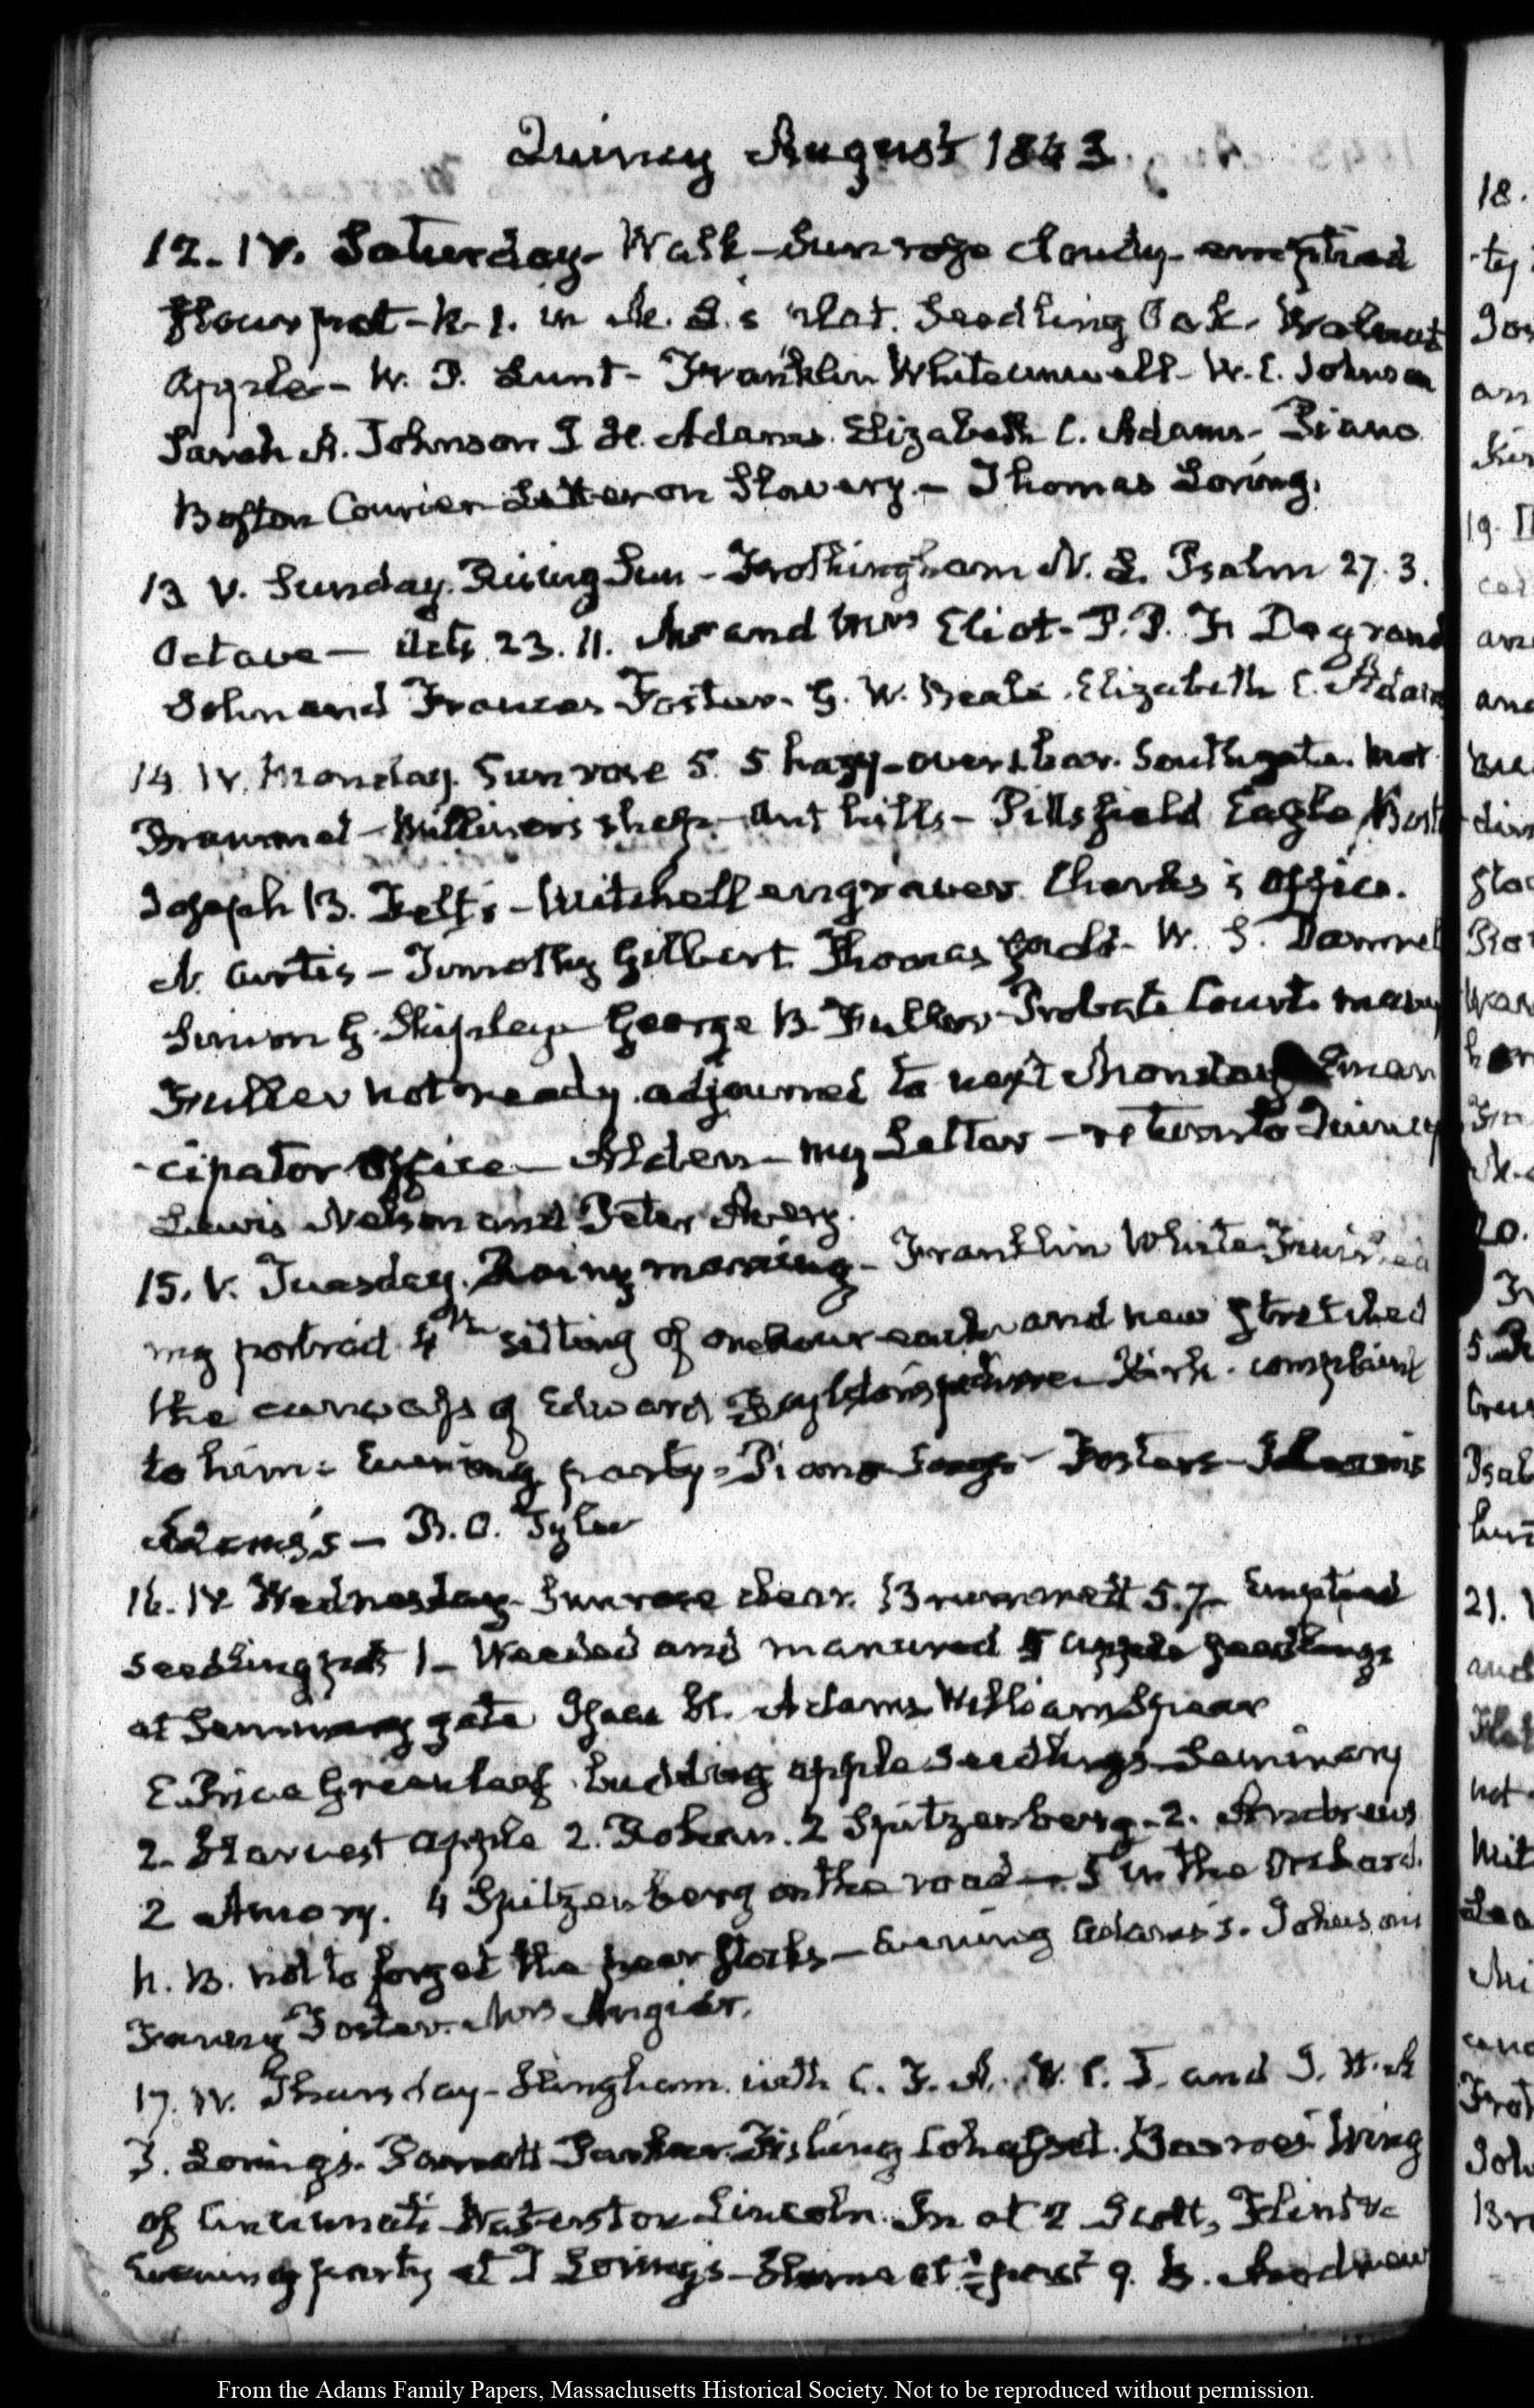 Quincy August 1843.
12. IV. Saturday. Walk - Sun rose cloudy - emptied
flower pot - N. 1. in seedling Oak. Walnut
Apple - W. P. Lunt - Franklin White unwell - W. C. Johnson
Sarah A. Johnson I. H. Adams. Elizabeth C. Adams - Piano
Boston Courier Letter on Slavery. - Thomas Loring.
13 V. Sunday. Rising Sun - Frothingham N. L. Psalm 27. 3.
Octave - Acts 23. 11. Mr and Mrs Eliot - P. P. F. Degrand
John and Frances Foster. G. W. Beale. Elizabeth C. Adams
14. IV. Monday. Sun rose 5. 5 hazy - over Southgate. not
- Milliner's shop - ant hills - Pittsfield Eagle
Joseph B. Felt's - Mitchell engraver. Charles's office.
N. Curtis - Timothy Gilbert. Thomas W. S.
Simon G. Shipley - George B. Fuller - Probate Court. Mary
Fuller not ready. adjourned to next Monday Eman
-cipator office - Alden - my Letter - return to Quincy
Lewis Nelson and Peter Avery.
15. V. Tuesday. Rainy morning - Franklin White finished
my portrait 4th sitting of one hour each and new stretched
the canvass of Edward Boylston's picture - Kirk. complaint
to him. Evening party - Piano Songs - Fosters -
Adams's - B. O. Tyler
16. IV Wednesday. Sun rose clear. 5.7 - Emptied
seedling pot 1 - Weeded and manured 5 apple seedlings
at Seminary gate Isaac H. Adams William Spear
E. Price Greenleaf budding apple seedlings - Seminary
2. Harvest apple 2. 2 Spitzenberg - 2. Andrews
2 Amory. 4 Spitzenberg on the road - 5 in the Orchard.
N. B. not to forget the pear stocks - Evening Adams's. Johnsons
Fanny Foster. Mrs Angier.
17. IV. Thursday - Hingham. with C. F. A. W. C. J. and I. H. A
T. Loring's. Fishing Cohasset.
of Cincinnati Waterston Lincoln. In at 2 Scott,
Evening party at T Loring's - Home at ½ past 9.